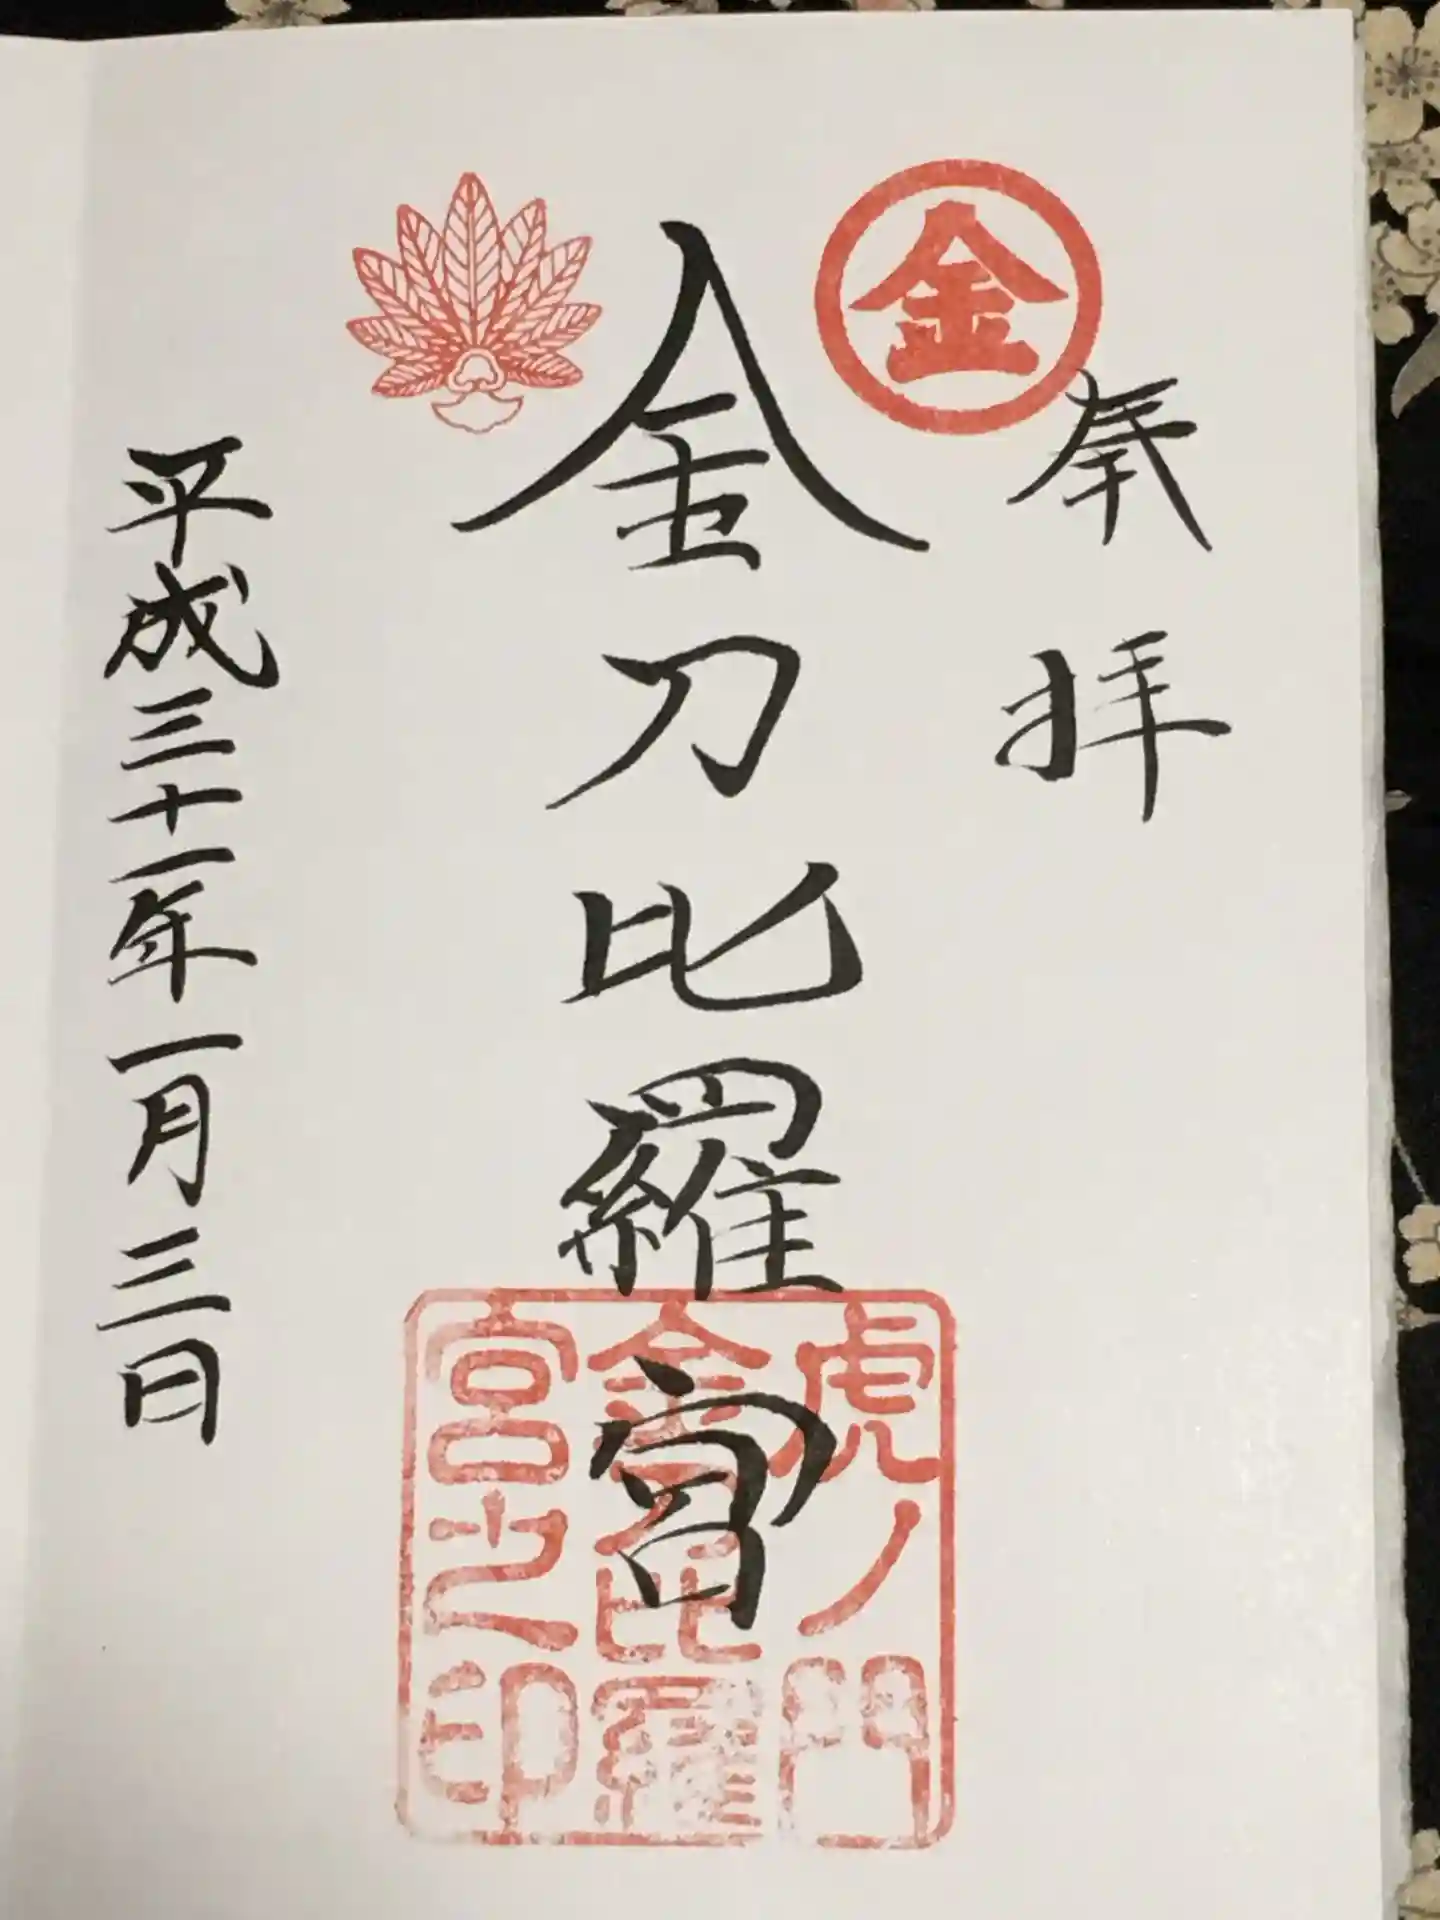 金
奉拝
金刀比羅宮
平成三十一年一月三日
虎ノ門
金刀比羅
宮之印